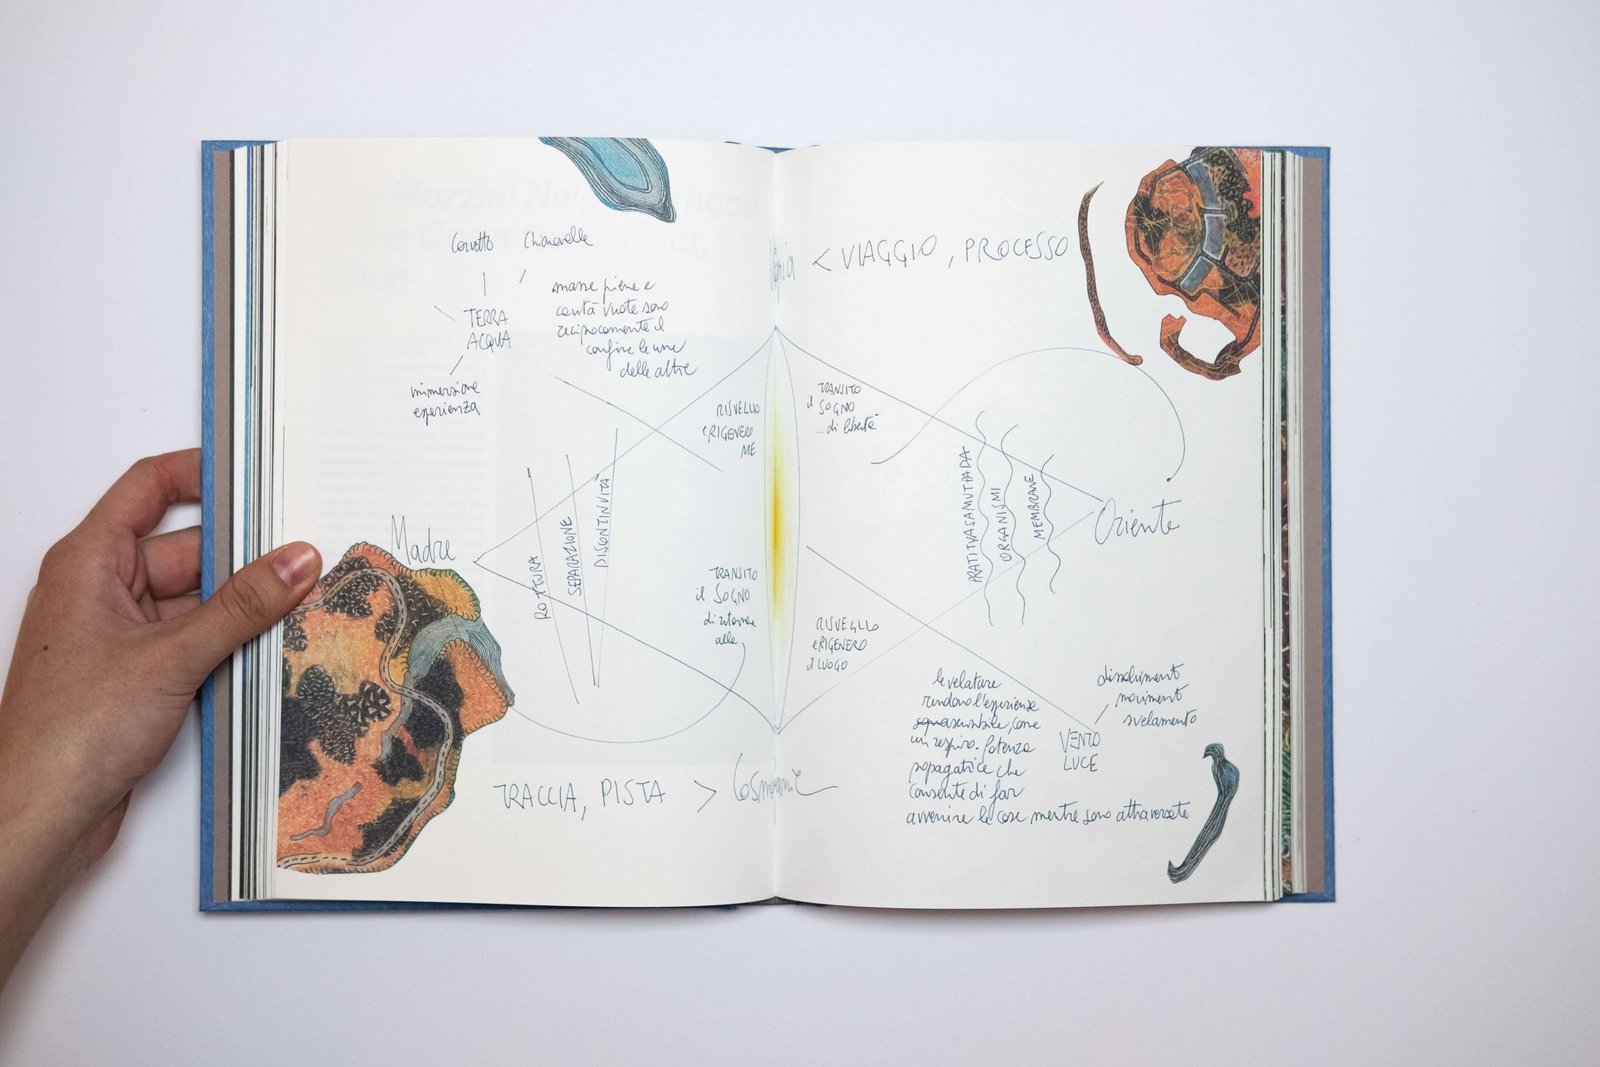 Corvetto Chiaravalle
TERRA
ACQUA
immersione
esperienza
masse piene e
cavità vuote sono
reciprocamente il
confine le une
delle altre
RISVEGLIO
e RIGENERO
ME
Madre
ROTTURA
SEPARAZIONE
DISCONTINUITÀ
TRANSITO
il SOGNO
di
alle
TRACCIA, PISTA >
< VIAGGIO, PROCESSO
TRANSITO
il SOGNO
...di libertà
PRATITYASAMUTPADA
ORGANISMI
MEMBRANE
Oriente
RISVEGLIO
e RIGENERO
il LUOGO
le velature
rendono l'esperienza
sensibile, come
un respiro. Potenza
propagatrice che
consente di far
avvenire le cose mentre sono attraversate
dissolvimento
movimento
svelamento
VENTO
LUCE